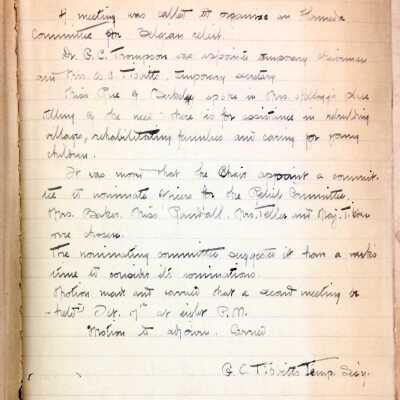 A meeting was called to organize an Alameda
Committee for Belgian relief.
Dr. P.C. Thompson was appointed temporary chairman
and Mrs. A.C. Tibvitts, temporary secretary.
Miss Rue of Berkeley spoke in Mrs. Kellogg's place
telling of the need there is for assistance in rebuilding
villages, rehabilitating families and caring for young
children.
It was moved that the Chair appoint a commit-
tee to nominate officers for the Relief Committee.
Mrs. Baker, Miss. Randall, Mrs. Teller and Maj. Tilson
were chosen.
The nominating committee suggested it have a week's
time to consider its nominations.
Motion made and carried that a second meeting be
held Oct. 7th at eight P.M.
Motion to adjourn. Carried
C. Tibvitts Temp. Sec'y.